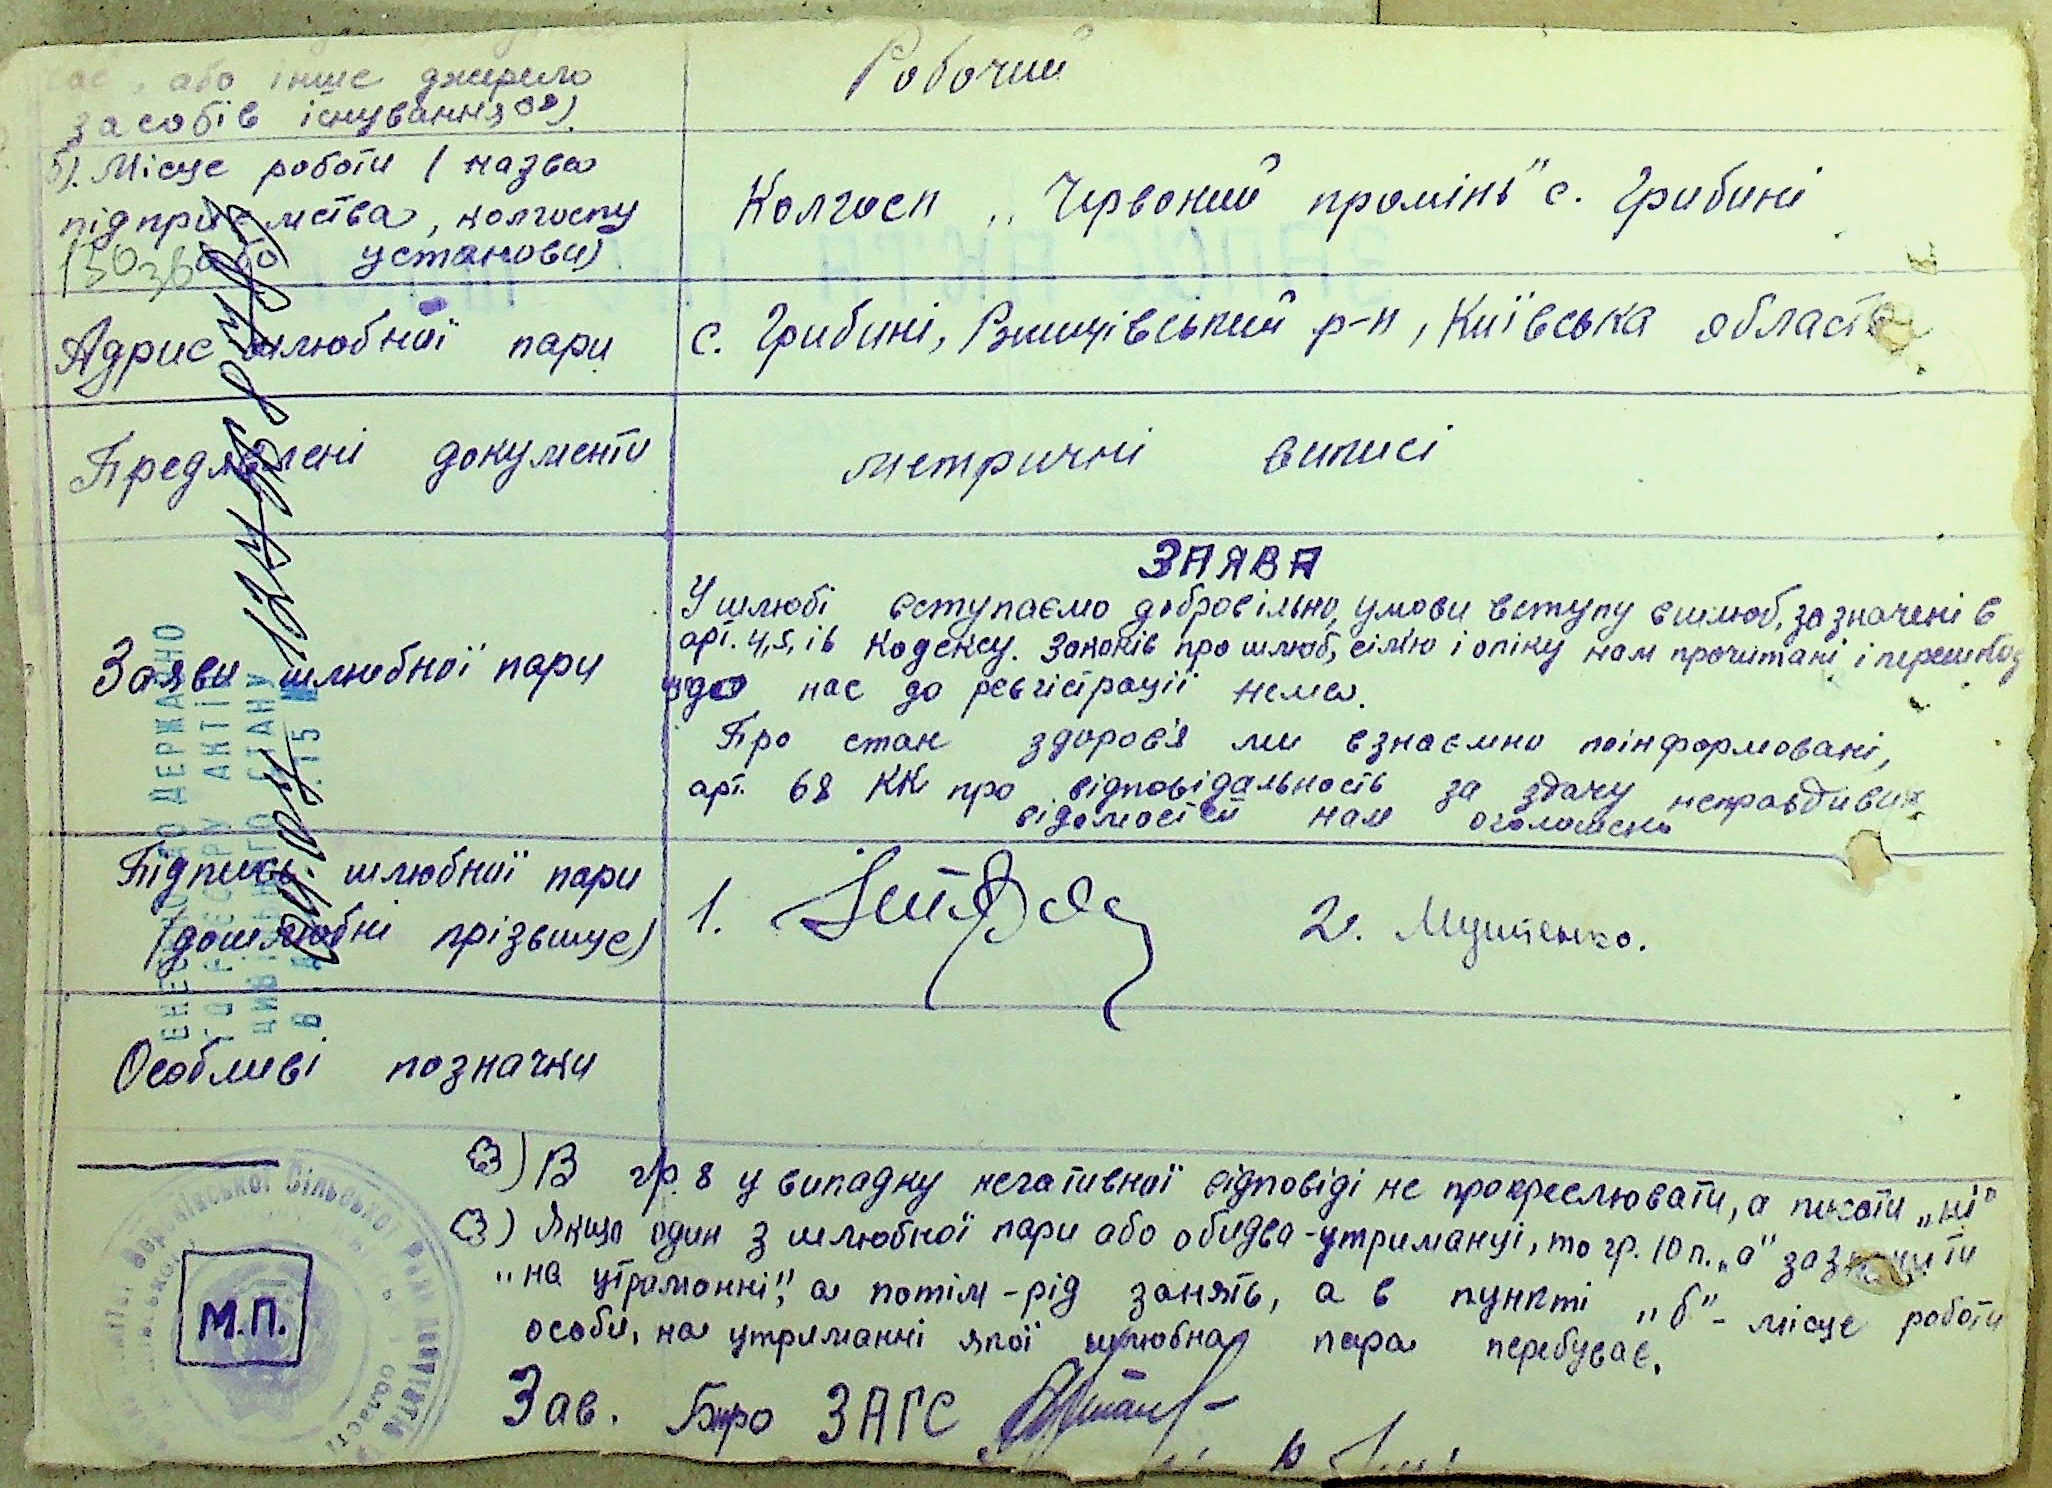 або інше джерело
засобів існування
Робочий
б). Місце роботи / назва
підприємства, колгоспу
або установи)
Колгосп „Червоний промінь" с. Грибині
Адрис шлюбної пари
с. Грибині, Ржищівський р-н, Київська область
Предявлені документи
метричні виписі
Заяви шлюбної пари
ЗАЯВА
У шлюбі вступаємо добровільно, умови вступу в шлюб, зазначені в
арт. 4, 5, і 6 Кодексу. Законів про шлюб, сім'ю і опіку нам прочитані і перешкод
до нас до реєгістрації нема.
Про стан здоров'я ми взнаємно поінформовані,
арт. 68 КК про відповідальность за здачу неправдивих
відомостей нам оголошено
Підпись шлюбної пари
(дошлюбні прізвище)
1.
2. Мушенко.
Особливі позначки
) В гр. 8 у випадку негативної відповіді не прокреслювати, а писати „ні"
) Якщо один з шлюбної пари або обидва - утриманці, то гр. 10 п. „а" зазначити
„на утриманні", а потім - рід занять, а в пункті „б" - місце роботи
особи, на утриманні якої шлюбна пара перебуває.
М.П.
Зав. Бюро ЗАГС
ДЕРЖАВНО
АКТІВ
СТАНУ